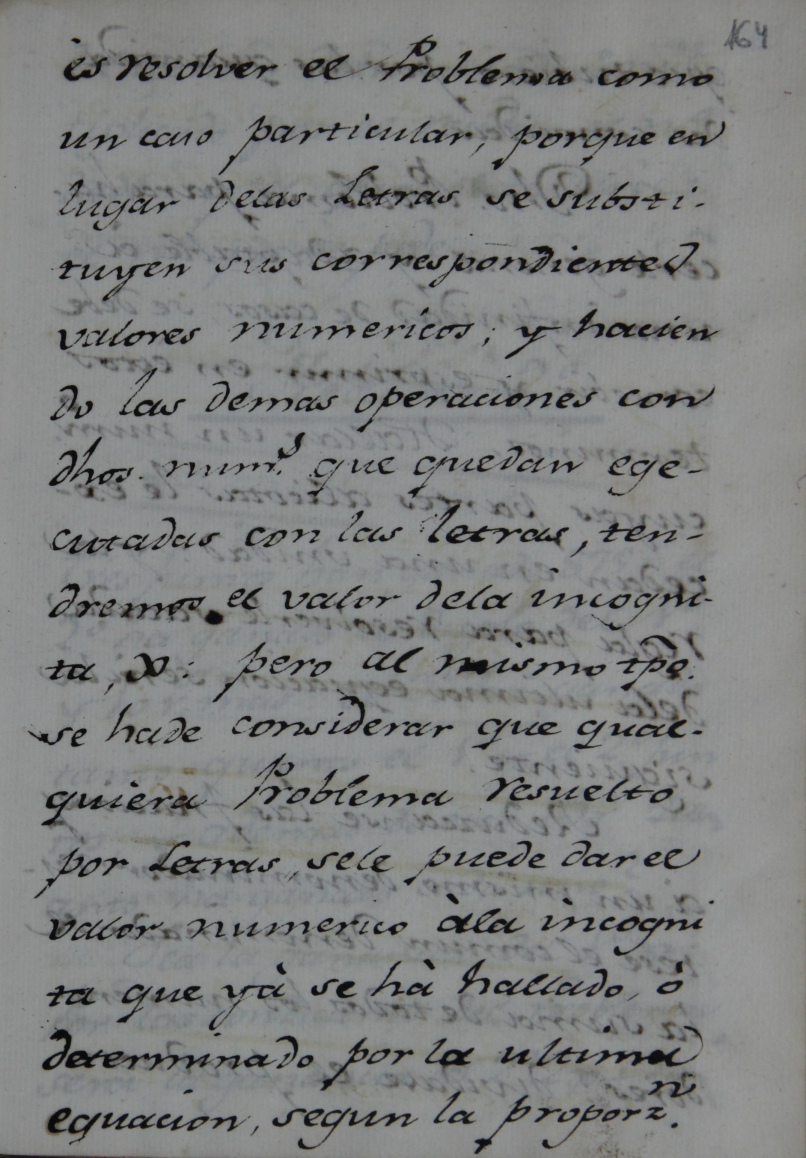 164
ès resolver el Problema como
un caso particular, porque en
lugar delas Letras se substi-
tuyen sus correspondientes
valores numericos; y hacien
do las demas operaciones con
dhos. num.s que quedan ege-
cutadas con las letras, ten-
dremos el valor dela incogni-
ta, x: pero al mismo tpo.
se hade considerar que qual-
quiera Problema resuelto
por Letras, sele puede dar el
valor numerico àla incogni
ta que yà se hà hallado, ò
determinado por la ultima
equacion, segun la proporz.n